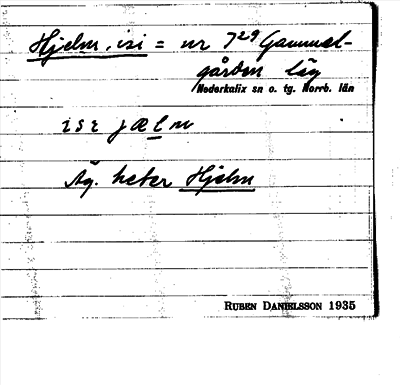 Hjelm, isi = nr 7²⁹ Gammel-
gården läg
Nederkalix sn o. tg. Norrb. län
isi jælm
Äg. heter Hjelm
RUBEN DANIELSSON 1935